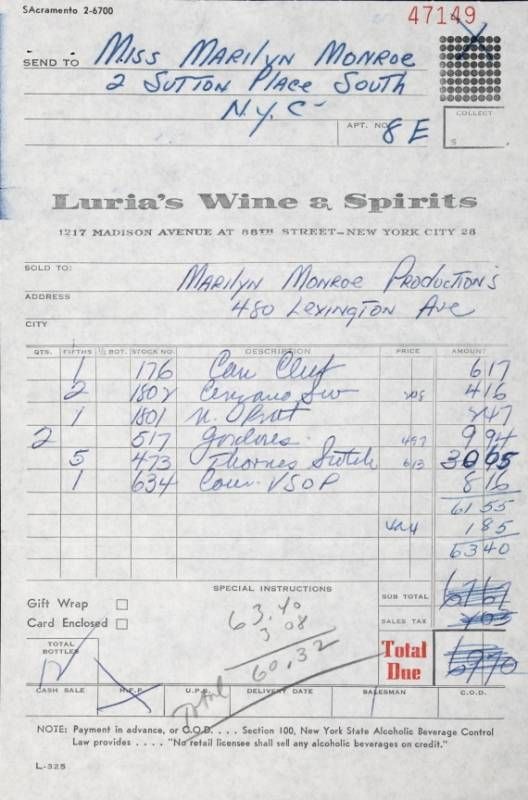 SAcramento 2-6700
47149
SEND TO Miss Marilyn Monroe
2 Sutton Place South
N.Y.C-
COLLECT
$
APT. NO. 8E
Luria's Wine & Spirits
1217 MADISON AVENUE AT 88TH STREET-NEW YORK CITY 28
SOLD TO: Marilyn Monroe Productions
ADDRESS 480 Lexington Ave
CITY
QTS. FIFTHS ½ BOT. STOCK NO. DESCRIPTION PRICE AMOUNT
1 176 617
2 1802 208 416
1 1801 N. Prat 247
2 517 Gordons 497 994
5 473 613 3065
1 634 Cour. VSOP 816
6155
185
6340
SPECIAL INSTRUCTIONS
Gift Wrap
Card Enclosed
63.40
3 08
Total 60.32
SUB TOTAL
SALES TAX
TOTAL BOTTLES
Total Due
CASH SALE U.P.S. DELIVERY DATE SALESMAN C.O.D.
NOTE: Payment in advance, or C.O.D. . . . Section 100, New York State Alcoholic Beverage Control
Law provides . . . . "No retail licensee shall sell any alcoholic beverages on credit."
L-325